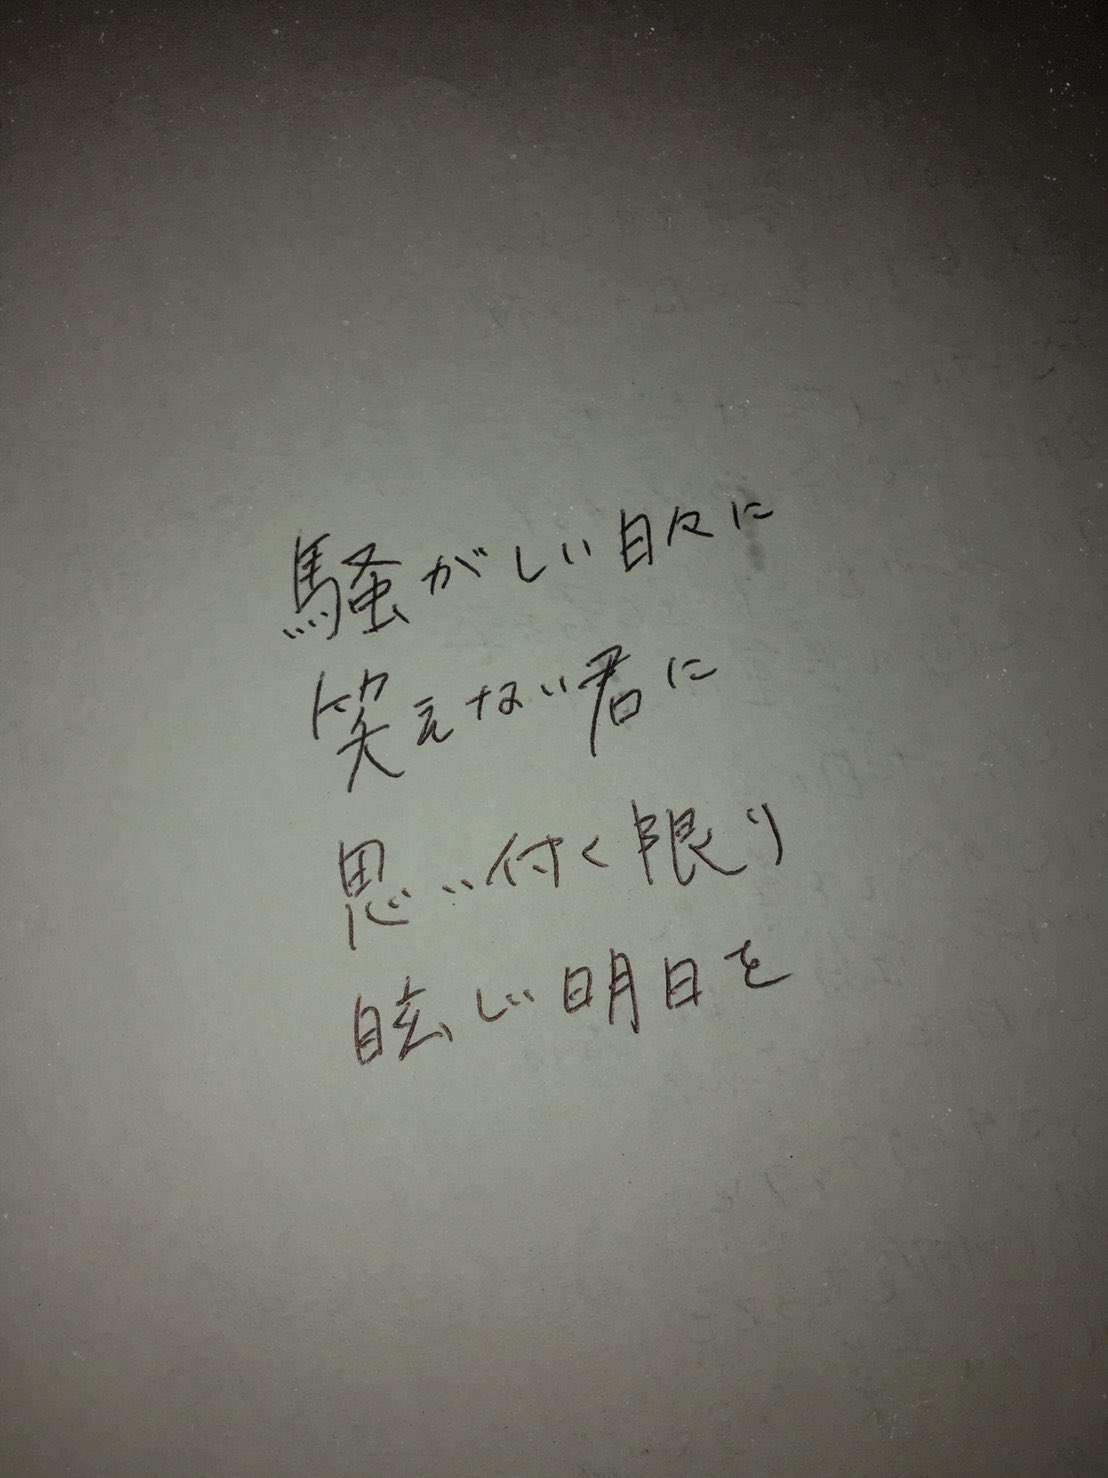 騒がしい日々に
笑えない君に
思い付く限り
眩しい明日を